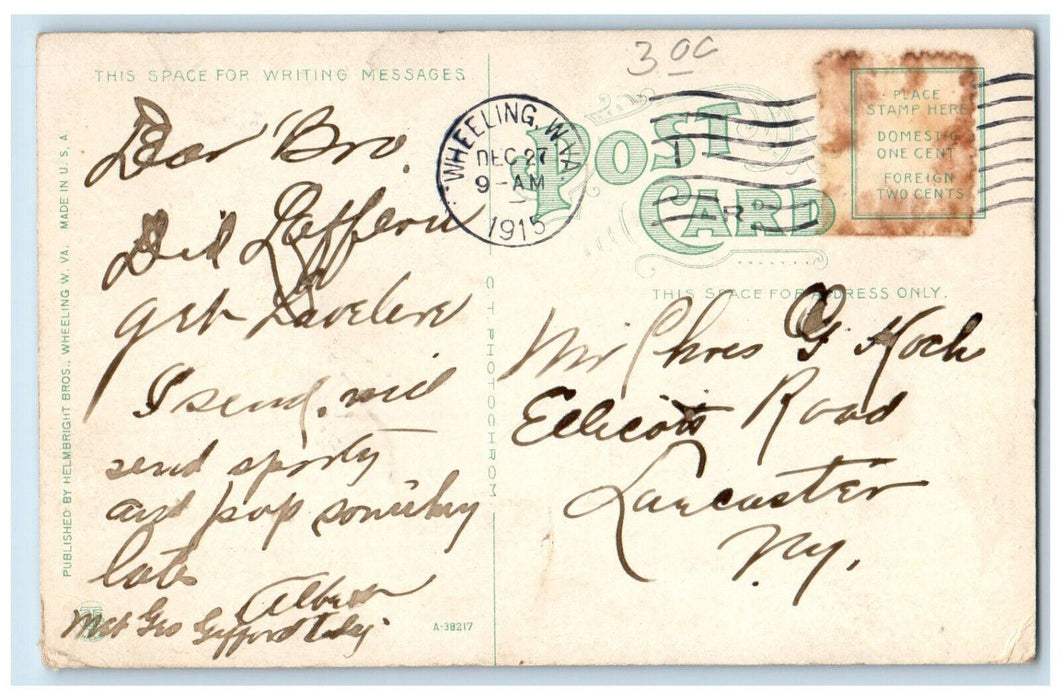 THIS SPACE FOR WRITING MESSAGES.
Dear Bro.
Did
get
I send, will
send sporty
and pop something
late
Albert
Met Geo Gifford today
PUBLISHED BY HELMBRIGHT BROS., WHEELING W. VA. MADE IN U. S. A.
A-38217
C T PHOTOCHROM
3 00
WHEELING, W.VA.
DEC 27
9-AM
1915
POST
CARD
PLACE
STAMP HERE
DOMESTIC
ONE CENT
FOREIGN
TWO CENTS
THIS SPACE FOR ADDRESS ONLY.
Mr Chres G Koch
Ellicott Road
Lancaster
N.y.